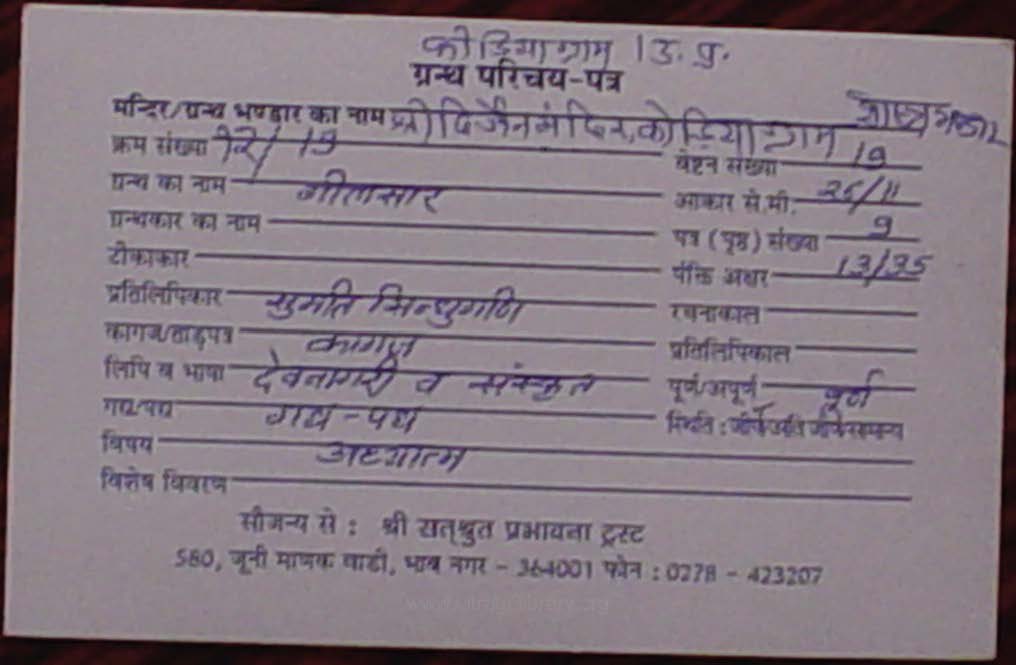 कोडियाग्राम । उ. प्र.
ग्रन्थ परिचय-पत्र
मन्दिर/ग्रन्थ भण्डार का नाम श्री दि जैन मंदिर, कोडियाग्राम शास्त्र भण्डार
क्रम संख्या 19 वेष्टन संख्या 19
ग्रन्थ का नाम गीतसार आकार से.मी. 25/11
ग्रन्थकार का नाम पत्र (पृष्ठ) संख्या 9
टीकाकार पंक्ति अक्षर 13/35
प्रतिलिपिकार सुमति सिन्धुगणि रचनाकाल
कागज/ताड़पत्र कागज प्रतिलिपिकाल
लिपि व भाषा देवनागरी व संस्कृत पूर्ण/अपूर्ण पूर्ण
गद्य/पद्य गद्य-पद्य स्थिति : जीर्ण/अति जीर्ण/सामान्य
विषय अध्यात्म
विशेष विवरण
सौजन्य से : श्री सत्श्रुत प्रभावना ट्रस्ट
580, जूनी माणक वाडी, भाव नगर - 364001 फोन : 0278 - 423207